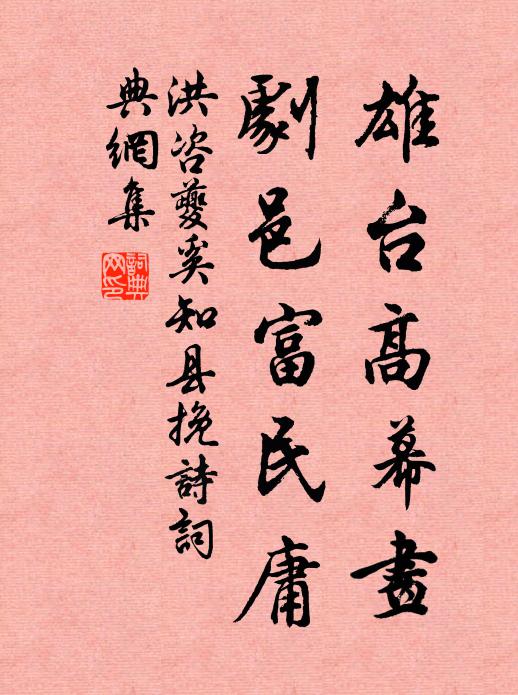 雄台高幕畫
劇邑富民庸
洪咨夔奚知县挽詩詞
典網集
詞典网印